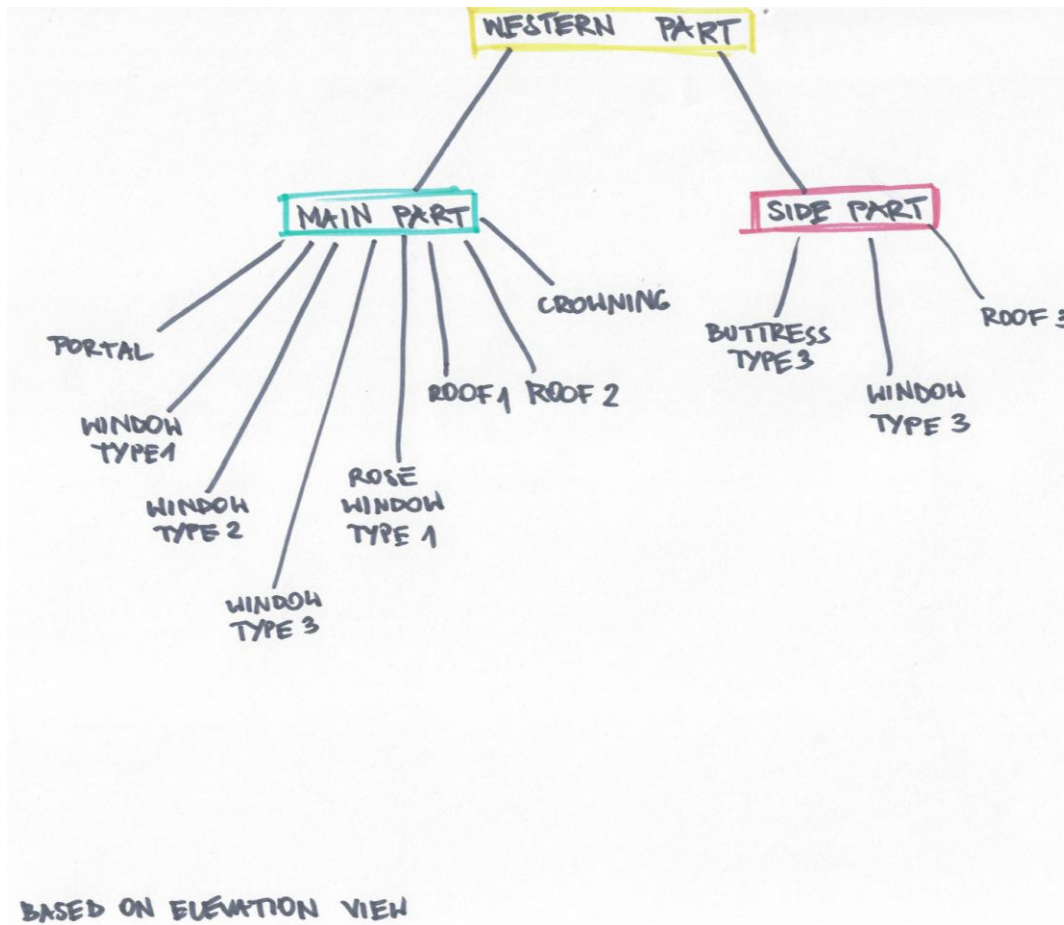 WESTERN PART
MAIN PART
SIDE PART
PORTAL
WINDOW
TYPE 1
WINDOW
TYPE 2
WINDOW
TYPE 3
ROSE
WINDOW
TYPE 1
ROOF 1
ROOF 2
CROWNING
BUTTRESS
TYPE 3
WINDOW
TYPE 3
ROOF 3
BASED ON ELEVATION VIEW